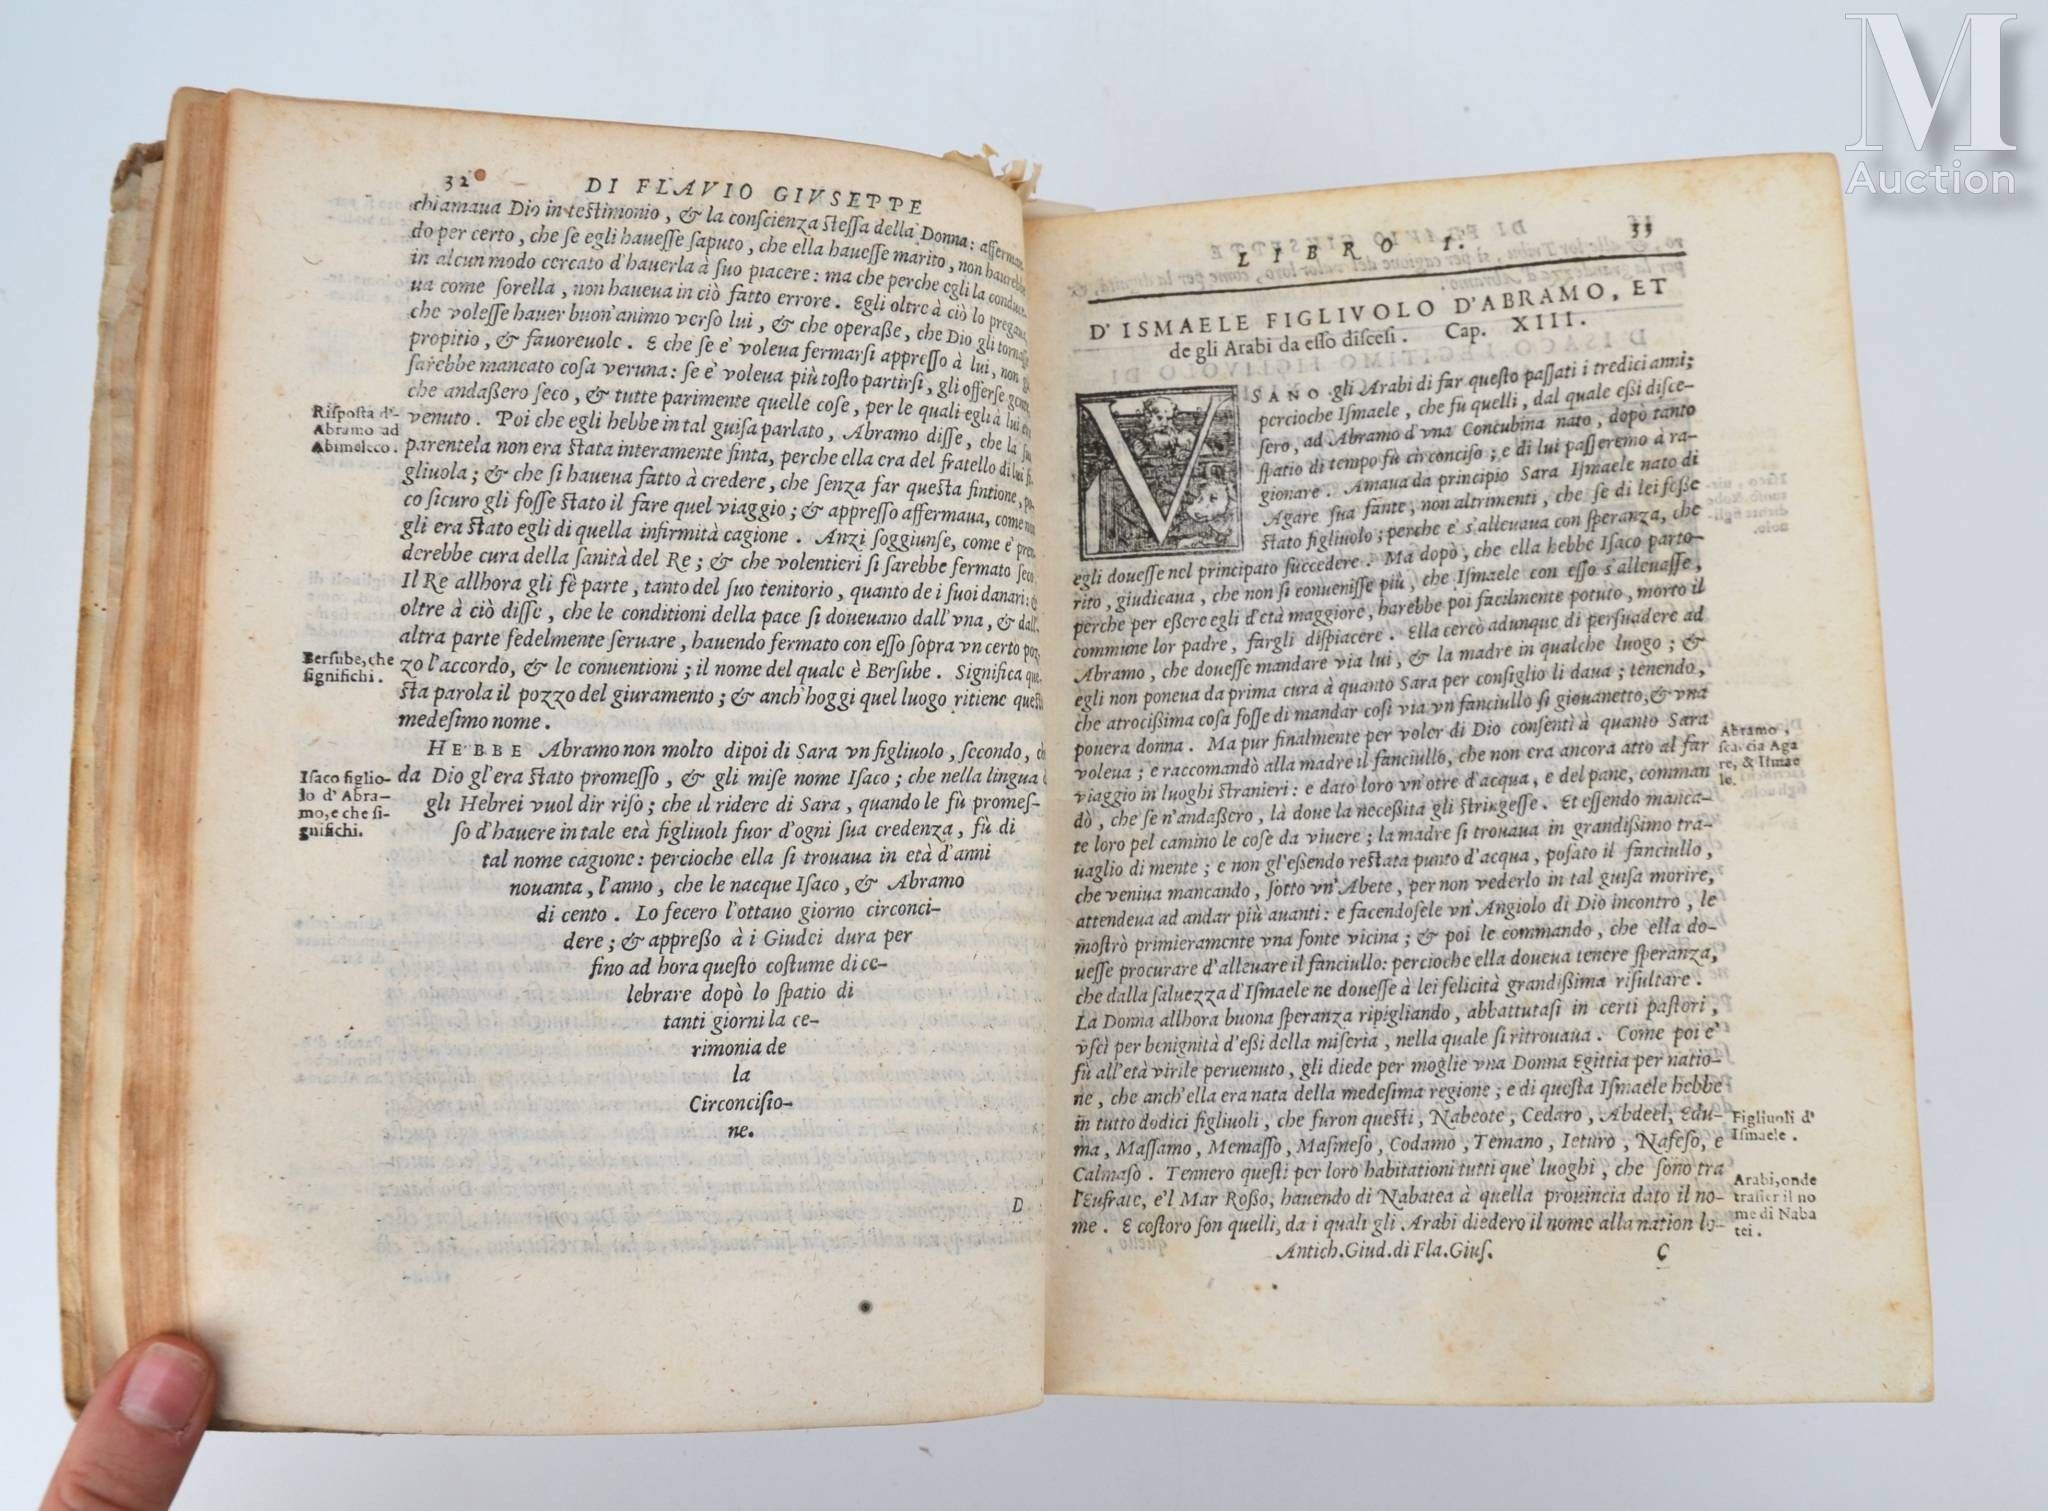 32
DI FLAVIO GIVSEPPE
chiamaua Dio in testimonio, & la conscienza stessa della Donna: afferman
do per certo, che se egli hauesse saputo, che ella hauesse marito, non haurebbe
in alcun modo cercato d'hauerla à suo piacere: ma che perche egli la conduce-
ua come sorella, non haueua in ciò fatto errore. Egli oltre à ciò lo pregaua,
che volesse hauer buon'animo verso lui, & che operaße, che Dio gli tornasse
propitio, & fauoreuole. E che se e' voleua fermarsi appresso à lui, non gli
sarebbe mancato cosa veruna: se e' voleua più tosto partirsi, gli offerse gente,
che andaßero seco, & tutte parimente quelle cose, per le quali egli à lui era
venuto. Poi che egli hebbe in tal guisa parlato, Abramo disse, che la sua
parentela non era stata interamente finta, perche ella era del fratello di lui fi-
gliuola; & che si haueua fatto à credere, che senza far questa fintione, po-
co sicuro gli fosse stato il fare quel viaggio; & appresso affermaua, come non
gli era stato egli di quella infirmità cagione. Anzi soggiunse, come e' pren
derebbe cura della sanità del Re; & che volentieri si sarebbe fermato seco.
Il Re allhora gli fè parte, tanto del suo tenitorio, quanto de i suoi danari: &
oltre à ciò disse, che le conditioni della pace si doueuano dall'vna, & dall'
altra parte fedelmente seruare, hauendo fermato con esso sopra vn certo poz
zo l'accordo, & le conuentioni; il nome del quale è Bersube. Significa que-
sta parola il pozzo del giuramento; & anch'hoggi quel luogo ritiene questo
medesimo nome.
HEBBE Abramo non molto dipoi di Sara vn figliuolo, secondo, che
da Dio gl'era stato promesso, & gli mise nome Isaco; che nella lingua
gli Hebrei vuol dir riso; che il ridere di Sara, quando le fù promes-
so d'hauere in tale età figliuoli fuor d'ogni sua credenza, fù di
tal nome cagione: percioche ella si trouaua in età d'anni
nouanta, l'anno, che le nacque Isaco, & Abramo
di cento. Lo fecero l'ottauo giorno circonci-
dere; & appreßo à i Giudei dura per
fino ad hora questo costume di ce-
lebrare dopò lo spatio di
tanti giorni la ce-
rimonia de
la
Circoncisio-
ne.
D
Risposta d'-
Abramo ad
Abimeleco.
Bersube, che
significhi.
Isaco figlio-
lo d'Abra-
mo, e che si-
gnifichi.
LIBRO I.
33
D'ISMAELE FIGLIVOLO D'ABRAMO, ET
de gli Arabi da esso discesi. Cap. XIII.
VSANO gli Arabi di far questo passati i tredici anni;
percioche Ismaele, che fù quelli, dal quale eßi disce-
sero, ad Abramo d'vna Concubina nato, dopò tanto
spatio di tempo fù circonciso; e di lui passeremo à ra-
gionare. Amaua da principio Sara Ismaele nato di
Agare sua fante, non altrimenti, che se di lei fosse
stato figliuolo; perche e' s'alleuaua con speranza, che
egli douesse nel principato succedere. Ma dopò, che ella hebbe Isaco parto-
rito, giudicaua, che non si conuenisse più, che Ismaele con esso s'alleuasse,
perche per eßere egli d'età maggiore, harebbe poi facilmente potuto, morto il
commune lor padre, fargli dispiacere. Ella cercò adunque di persuadere ad
Abramo, che douesse mandare via lui, & la madre in qualche luogo; &
egli non poneua da prima cura à quanto Sara per consiglio li daua; tenendo,
che atrocißima cosa fosse di mandar così via vn fanciullo sì giouanetto, & vna
pouera donna. Ma pur finalmente per voler di Dio consentì à quanto Sara
voleua; e raccomandò alla madre il fanciullo, che non era ancora atto al far
viaggio in luoghi stranieri: e dato loro vn'otre d'acqua, e del pane, comman
dò, che se n'andaßero, là doue la neceßita gli stringesse. Et essendo manca-
te loro pel camino le cose da viuere; la madre si trouaua in grandißimo tra-
uaglio di mente; e non gl'eßendo restata punto d'acqua, posato il fanciullo,
che veniua mancando, sotto vn'Abete, per non vederlo in tal guisa morire,
attendeua ad andar più auanti: e facendosele vn'Angiolo di Dio incontro, le
mostrò primieramente vna fonte vicina; & poi le commandò, che ella do-
uesse procurare d'alleuare il fanciullo: percioche ella doueua tenere speranza,
che dalla saluezza d'Ismaele ne douesse à lei felicità grandißima risultare.
La Donna allhora buona speranza ripigliando, abbattutasi in certi pastori,
vscì per benignità d'eßi della miseria, nella quale si ritrouaua. Come poi e'
fù all'età virile peruenuto, gli diede per moglie vna Donna Egittia per natio-
ne, che anch'ella era nata della medesima regione; e di questa Ismaele hebbe
in tutto dodici figliuoli, che furon questi, Nabeote, Cedaro, Abdeel, Edu-
ma, Massamo, Memasso, Masmeso, Codamo, Temano, Ieturo, Nafeso, e
Calmaso. Tennero questi per loro habitationi tutti que' luoghi, che sono tra
l'Eufrate, e'l Mar Roßo, hauendo di Nabatea à quella prouincia dato il no-
me. E costoro son quelli, da i quali gli Arabi diedero il nome alla nation lo-
Antich. Giud. di Fla. Gius. C
Abramo,
scaccia Aga
re, & Ismae
le.
Figliuoli d'
Ismaele.
Arabi, onde
trasser il no
me di Naba
tei.
M
Auction